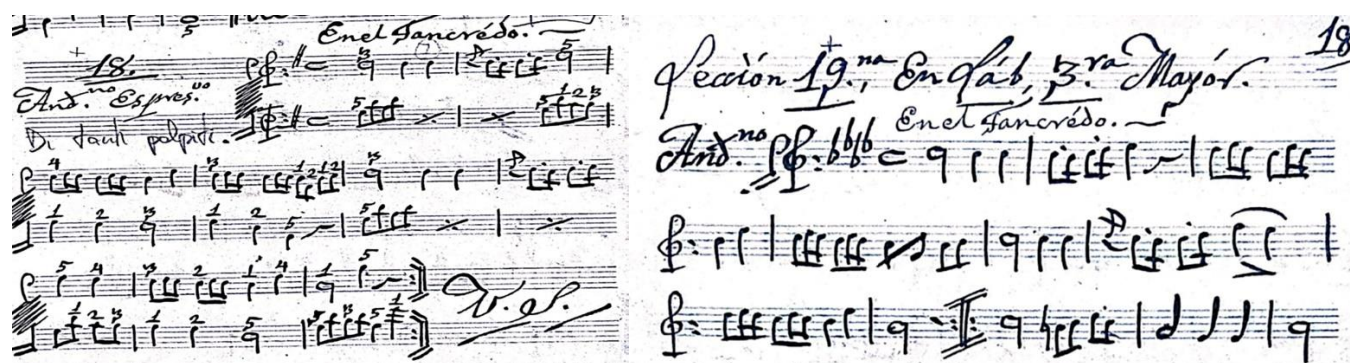 En el Tancrédo.
18.
And.no Espres.vo
Di tanti palpiti.
V. S.
18
Lección 19.na, En Láb, 3.ra Mayór.
En el Tancrédo.
And.no